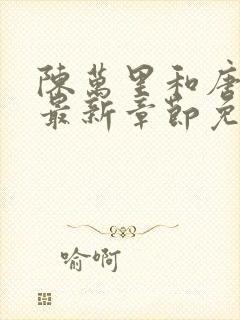 陳萬里和唐
最新章節免
喻啊